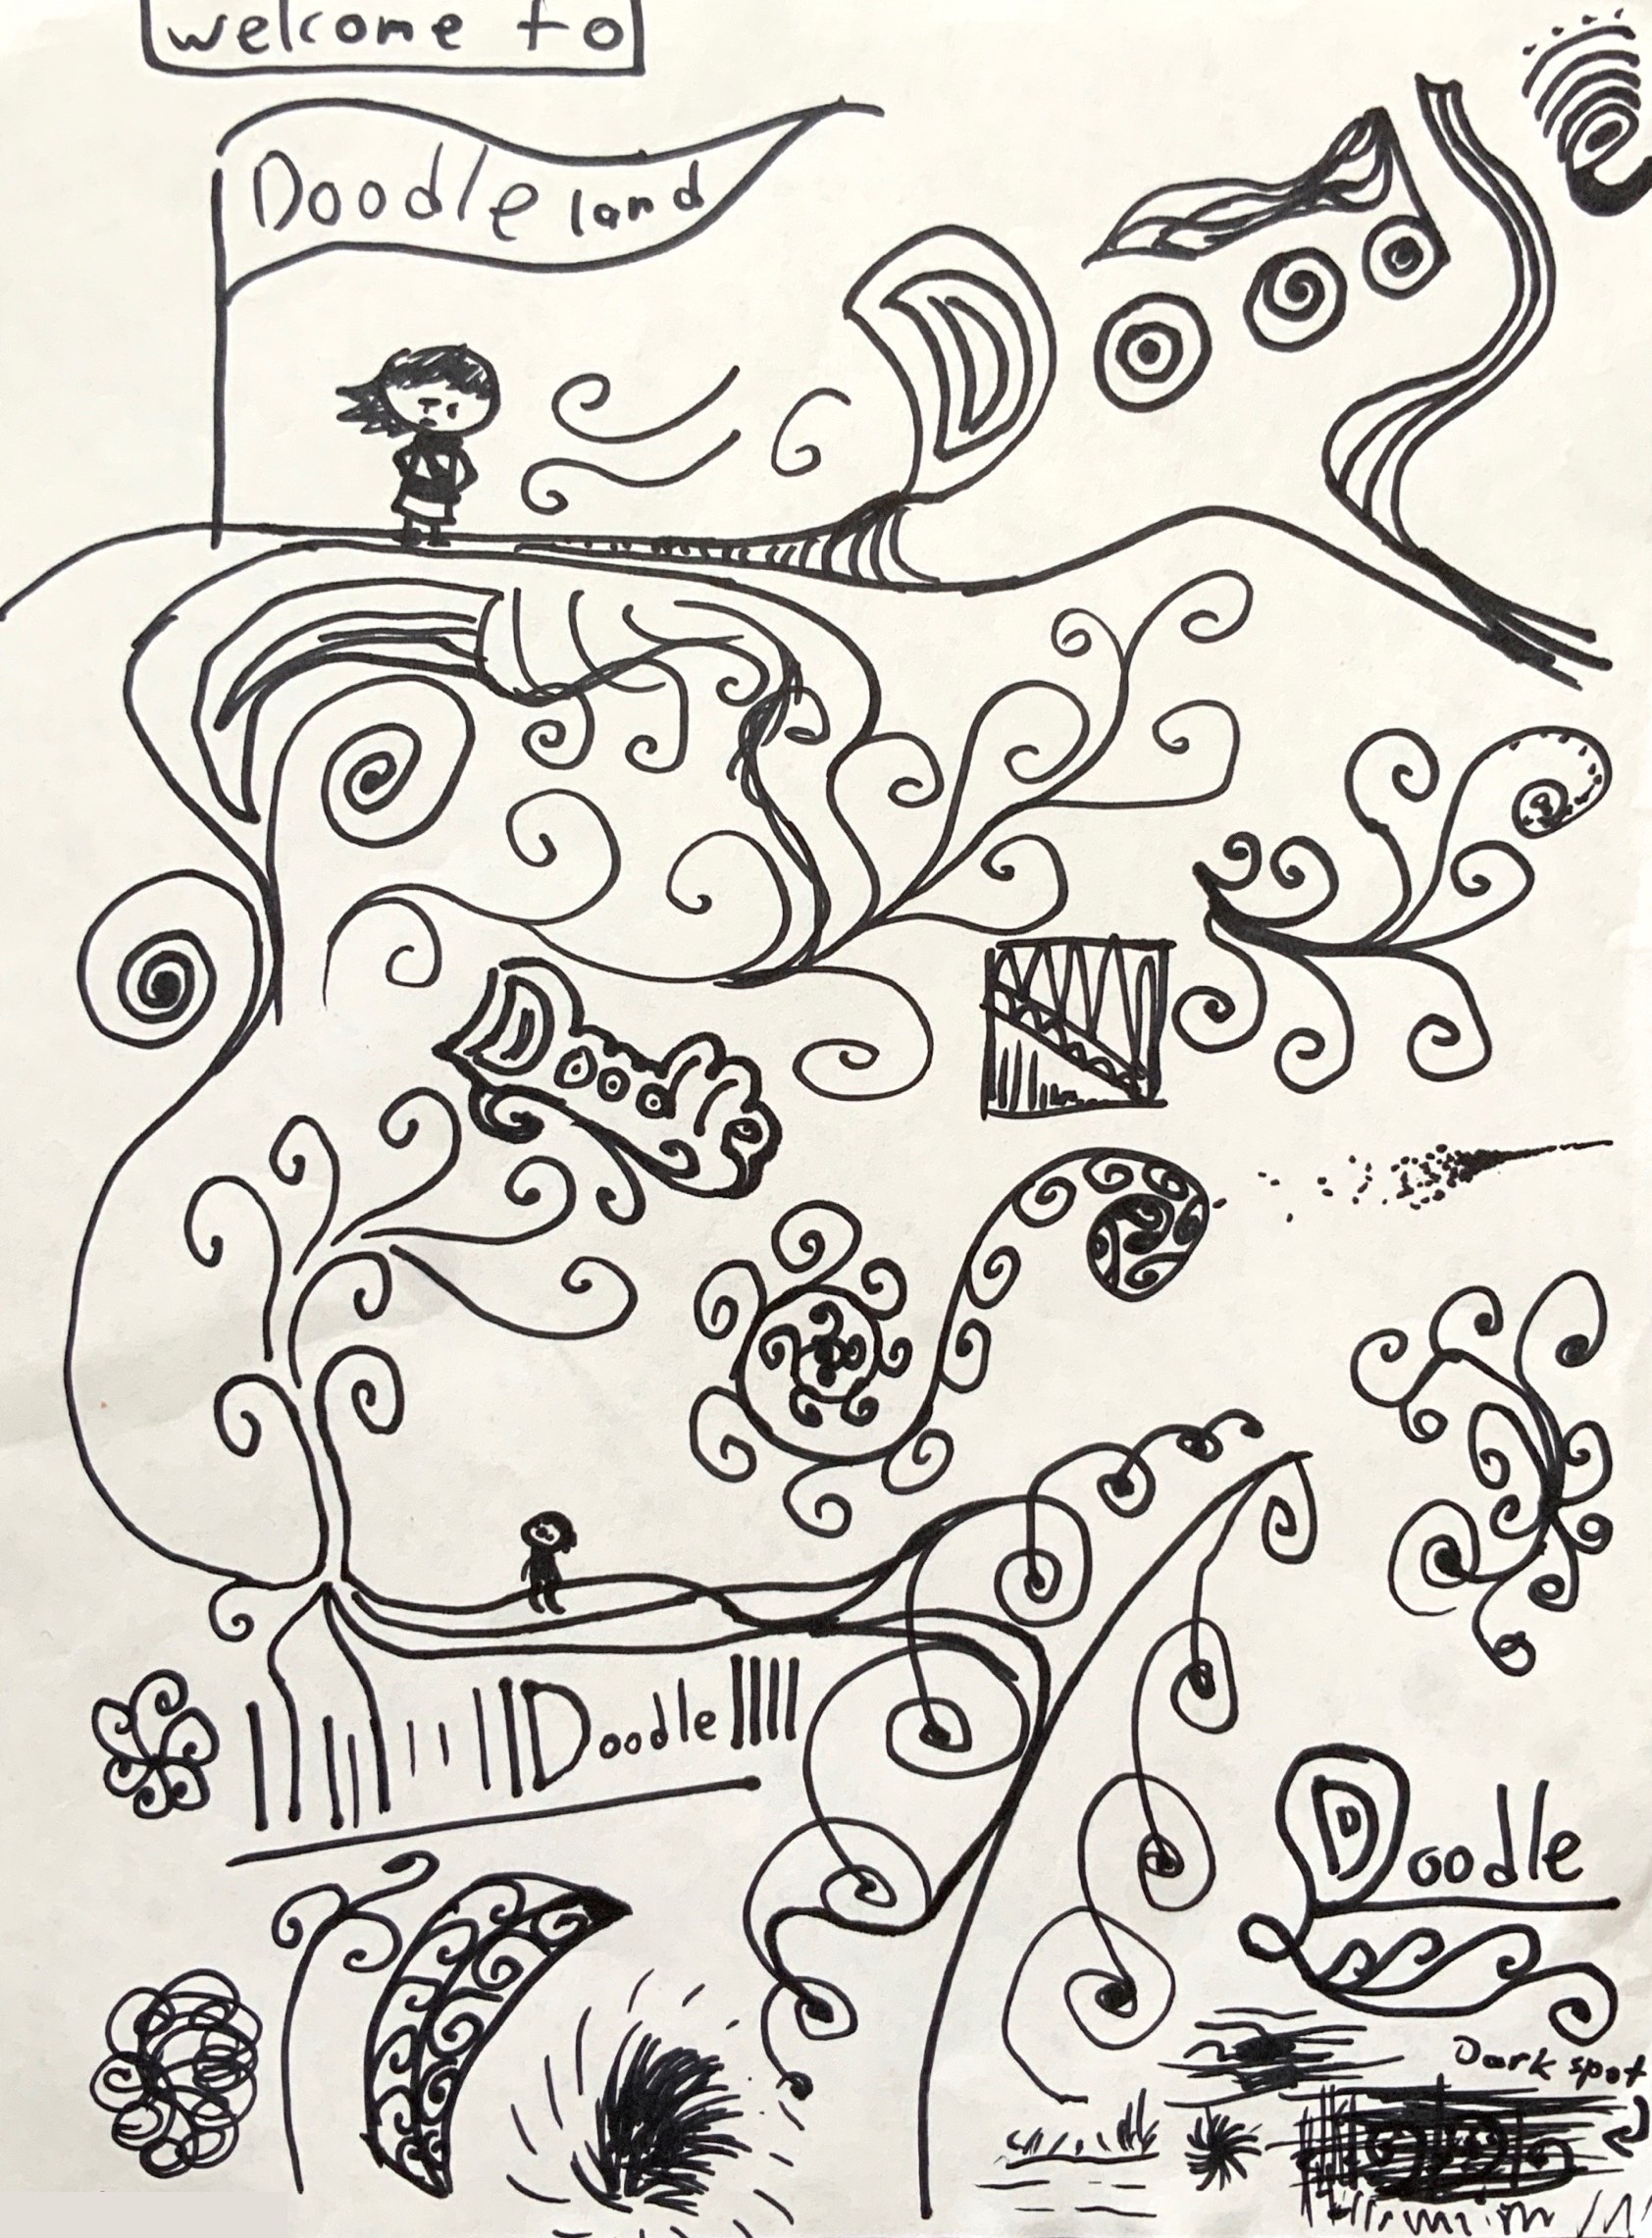 welcome to
Doodle land
D
Doodle
Doodle
Doodle
Dark spot